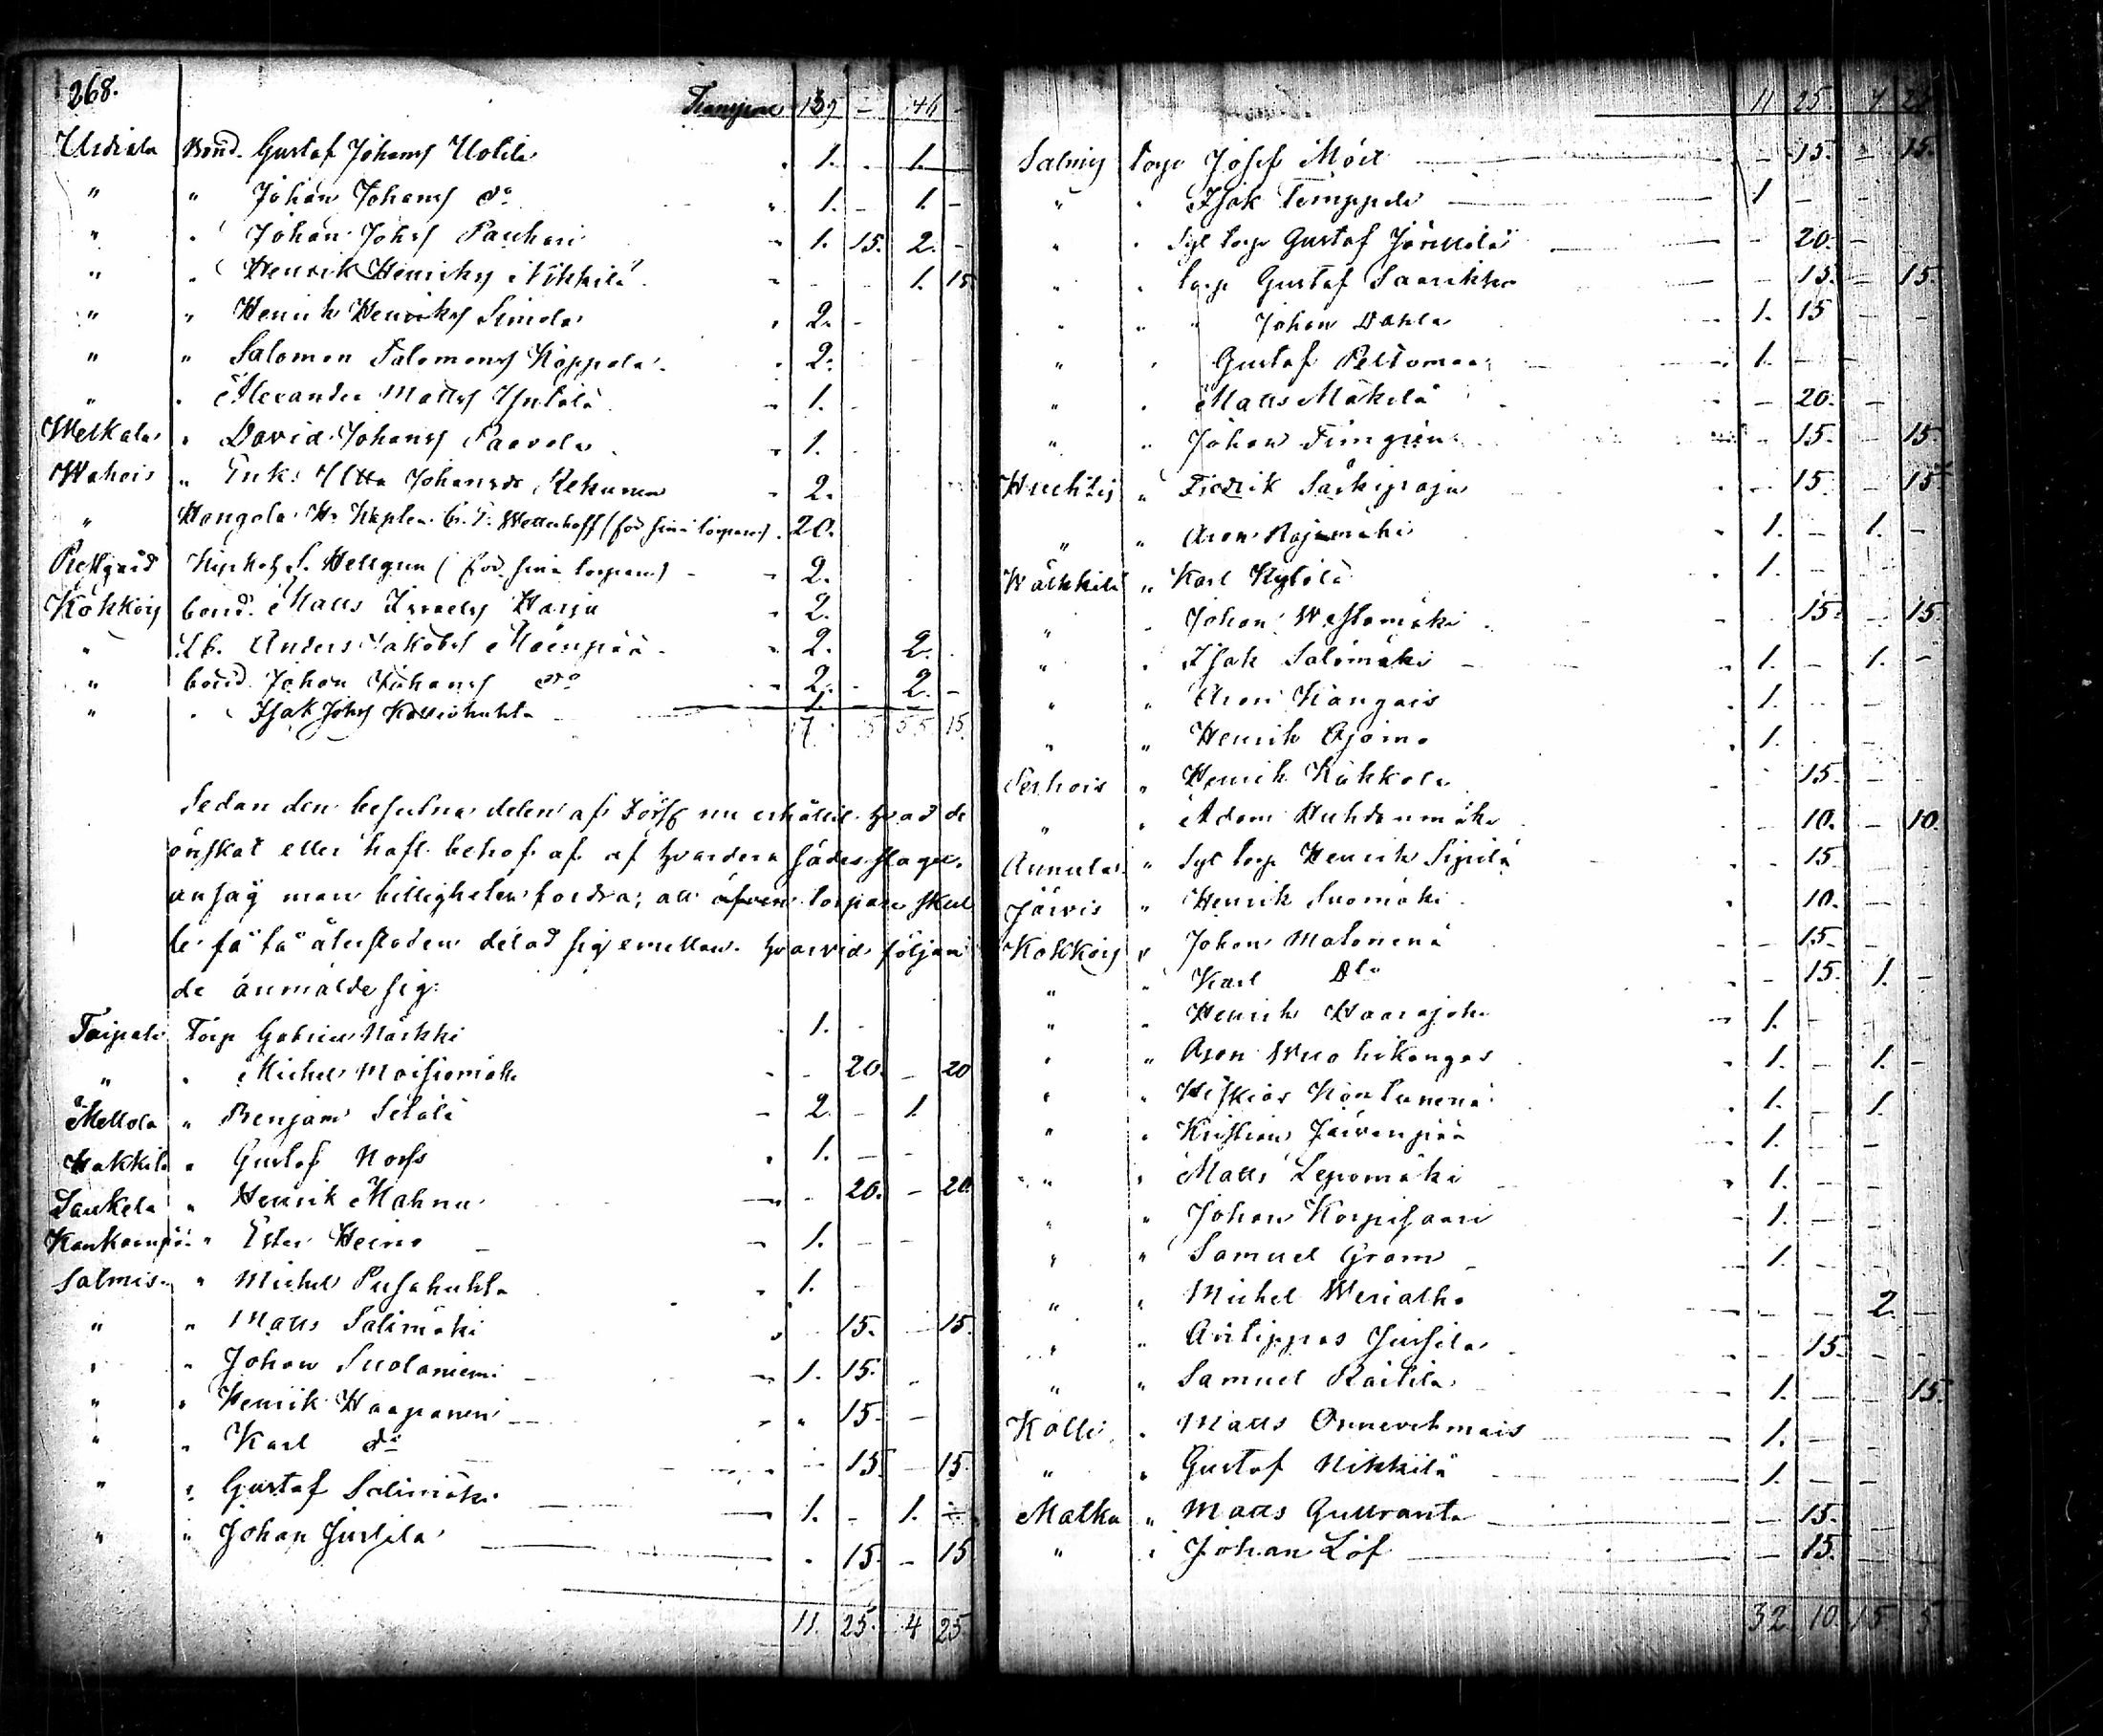 268.
Transport 139 - 46 -
Urdiala Bond. Gustaf Johans Uotila 1. - 1. -
" " Johan Johans do 1. - 1. -
" " Johan Johs Pauhari 1. 15. 2. -
" " Henrik Henriks Nikkilä - - 1. 15
" " Henrik Henriks Simola 2. -
" " Salomon Salomons Koppola 2.
" " Alexander Matts 1. -
" David Johans Paavola 1.
Wahois " Enk. Johansdr Rekunen 2.
" Hongola Hr Kaplan G. F. Wetterhoff (för sina torpare) 20.
Prestgård Kyrkoh. S. Hellgren (för sina torpare) 2.
Kokkois bond. Matts Israels Harju 2.
" Anders Jakobs Mäenpää 2. 2.
" bond. Johan Johans do 2. - 2. -
" " Isak Johs 1.
15.
Sedan den besutna delen af nu erhållit hvad de
önskat eller haft behof af af hvardera sädesslaget,
ansåg man billigheten fordra, att äfven torpare skul
le få få återstoden delad sig emellan. hvarvid följan
de anmälde sig:
Taipale Torp Gabriel Närkki 1. -
" " Michel - 20. - 20
Mellola " Benjam Setälä 2. - 1.
Hakkila " Gustaf Norss 1. - -
Laukela " Henrik Mahnu - 20. - 20.
" Ester Heino 1. - -
Salmis " Michel Pusahuhta 1. -
" " Matts Salimäki 15. - 15.
" " Johan Suolaniemi 1. 15. -
" " Henrik Haapanen " 15. -
" " Karl do - 15. - 15.
" " Gustaf Salimäki 1. - 1. -
" " Johan Jussila - 15. - 15
11. 25. 4 25.
11 25 4 25
Salmis torp Josef Mört - 15. - 15.
" " Isak Temppele 1 - -
" " Syt torp Gustaf - 20. -
" " torp Gustaf Saarikko - 15. - 15.
" " " Johan Dahla 1. 15 - -
" " Gustaf Peltomaa 1. - -
" " Matts Mäkelä - 20. -
" " Johan - 15. - 15.
Huchtis " Fredrik Särkiraja - 15. 15
" " Aron Rajamäki 1. - 1. -
Wälkkilä " Karl Kylölä 1. -
" " Johan Westomäki - 15. - 15.
" " Isak Salomäki 1. - 1. -
" " Aron Kangais 1. - -
" " Henrik Ajomo 1. -
" Henrik Kukkola 15. -
" " Adam Huhdanmäki - 10. - 10.
Annula " Syt torp Henrik Sipilä - 15
Järvis " Henrik Suomäki 10. -
Kokkois " Johan Matonenä - 15. -
" " Karl Do - 15. 1. -
" " Henrik Haarajoki 1. -
" " Aron Wuohikangas 1. - 1. -
" " Hiskias Kontunenä 1. - 1.
" " Kristian Järvenpää 1. - -
" " Matts Lepomäki 1. - -
" " Johan Korpisaari 1. - -
" " Samuel Grom 1. - -
" " Michel Werialho - - 2. -
" " Jussila - 15. - -
" " Samuel Raitila 1. - 15.
Kolli " Matts 1. -
" " Gustaf Nikkilä 1. - -
Matku " Matts Gullranta - 15. -
" " Johan Löf - 15. - -
32 10 15 5